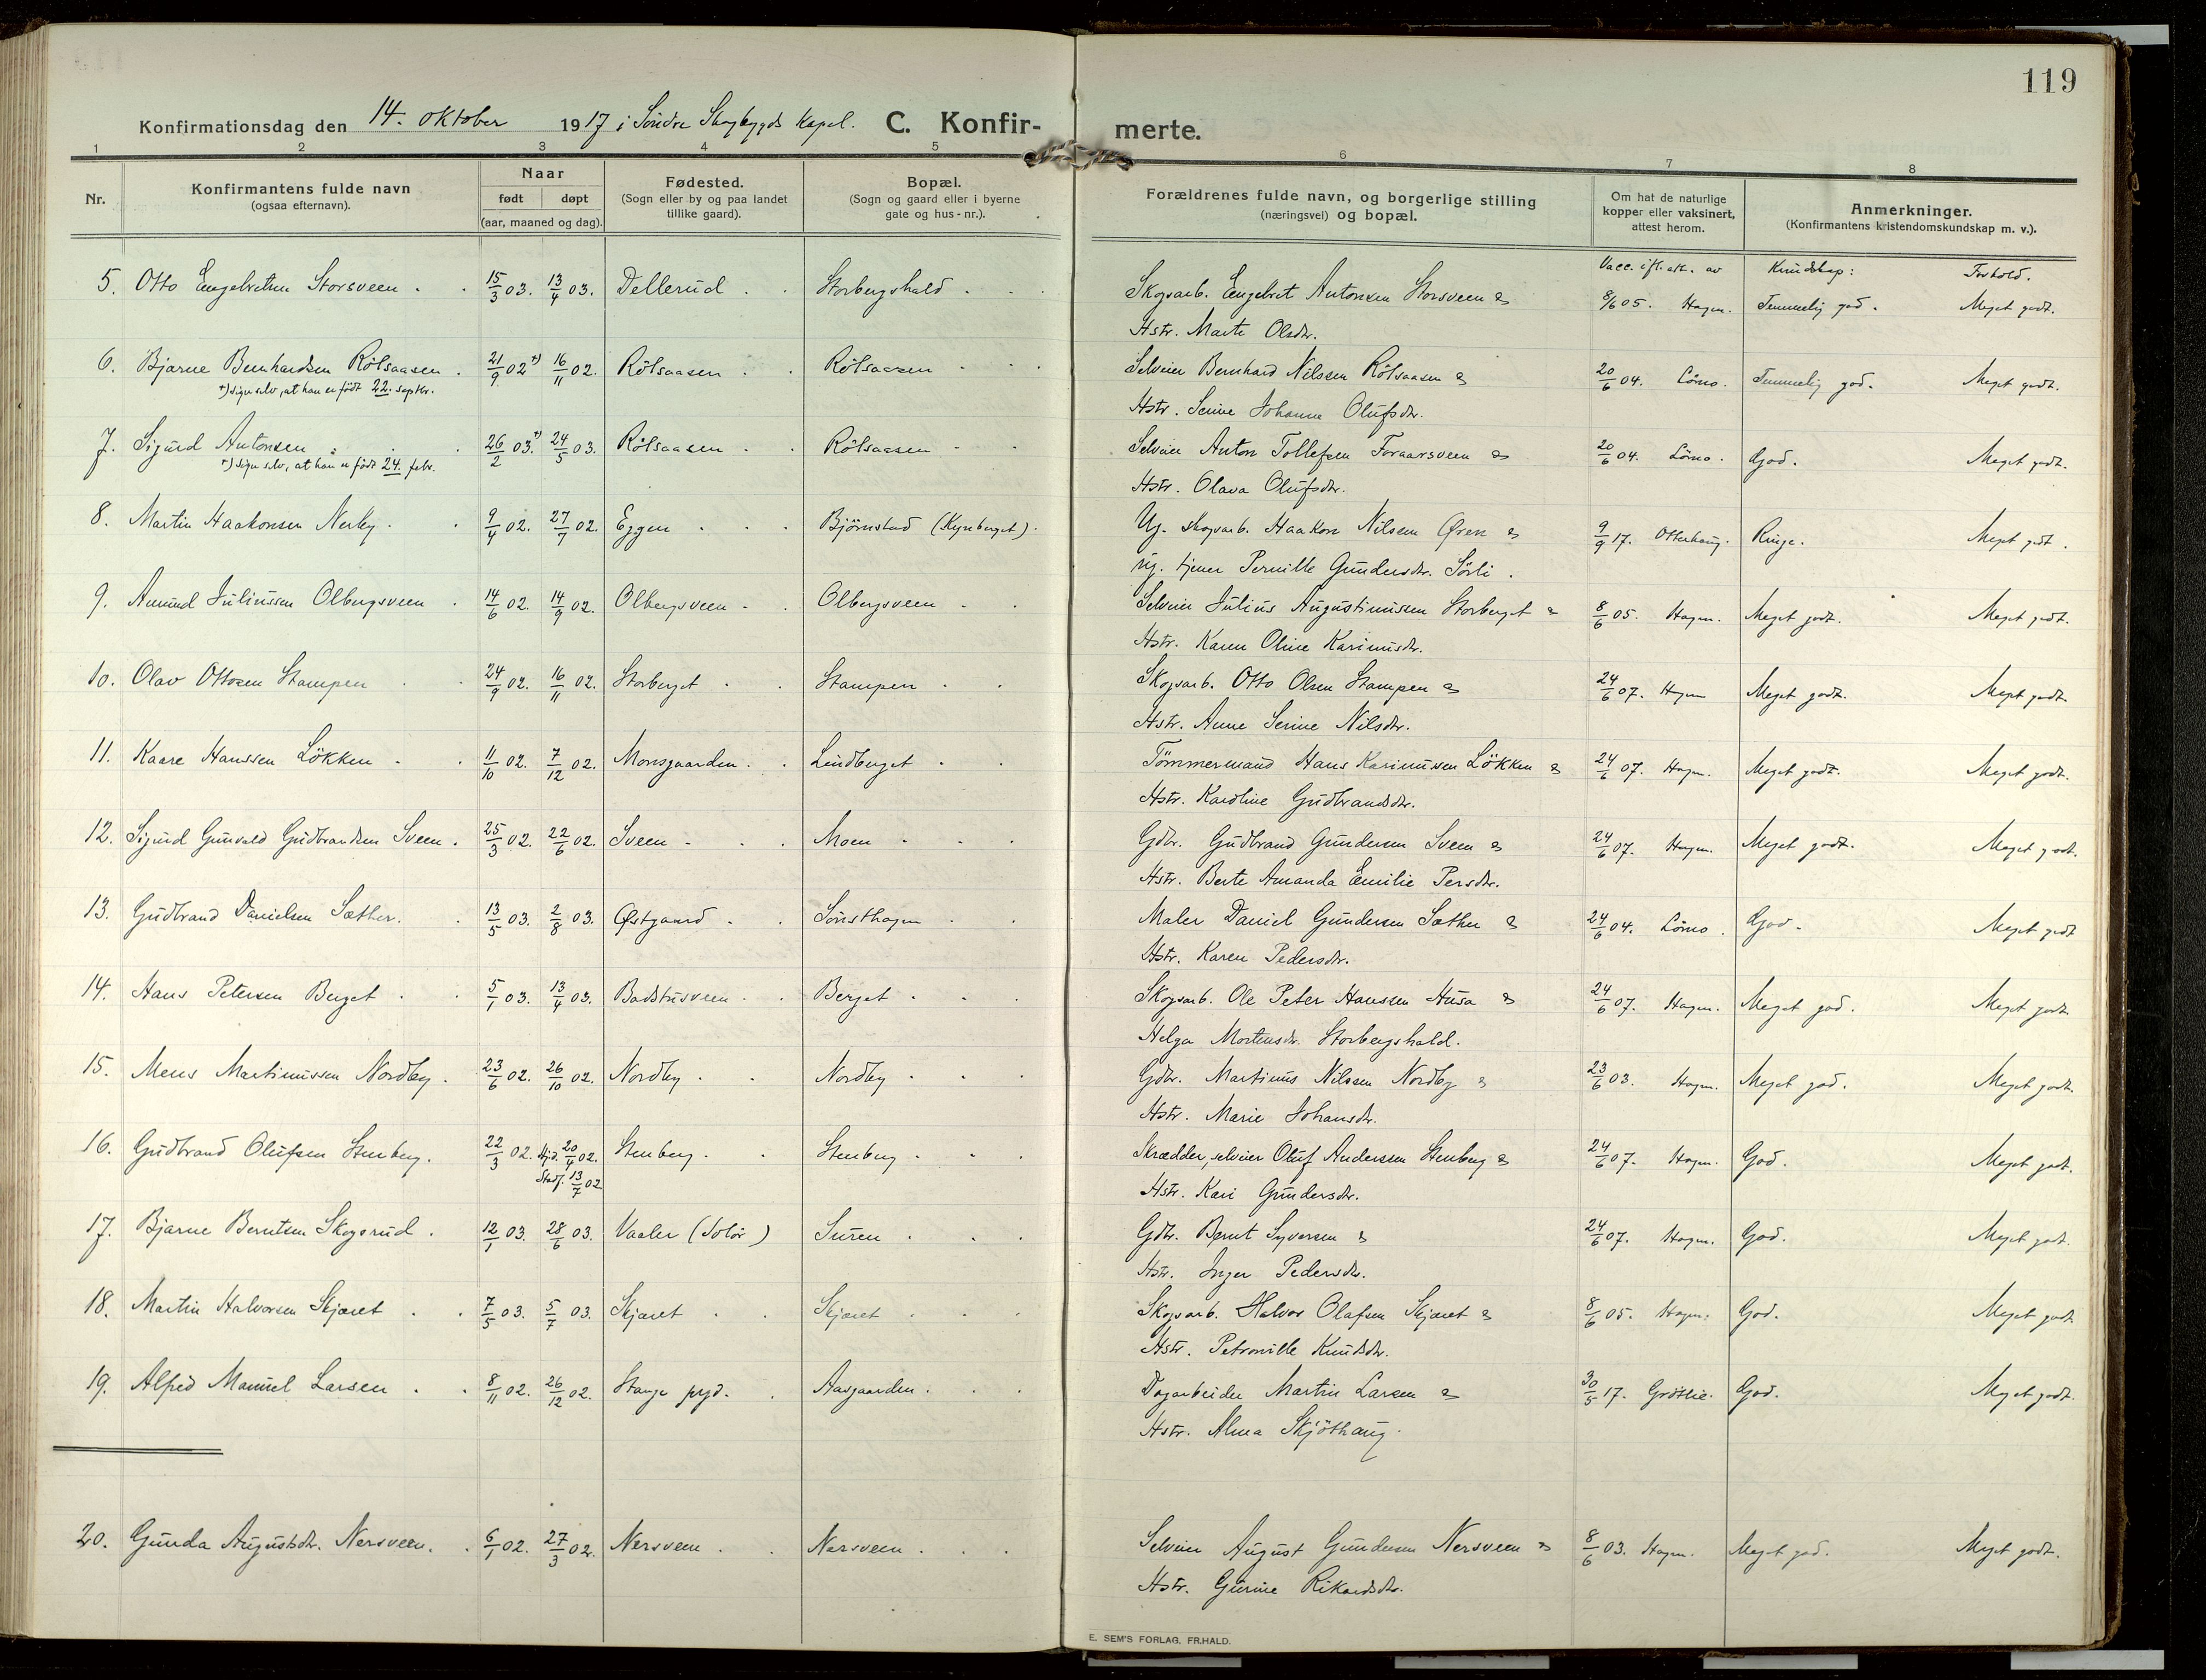 119
Konfirmationsdag den 14. oktober 1917 i Söndre Skogbygds Kapel. C. Konfir- merte.
1 2 3 4 5 6 7 8
Nr.
Konfirmantens fulde navn
(ogsaa efternavn).
Naar
født døpt
(aar, maaned og dag).
Fødested.
(Sogn eller by og paa landet
tillike gaard).
Bopæl.
(Sogn og gaard eller i byerne
gate og hus-nr.).
Forældrenes fulde navn, og borgerlige stilling
(næringsvei) og bopæl.
Om hat de naturlige
kopper eller vaksinert,
attest herom.
Anmerkninger.
(Konfirmantens kristendomskundskap m. v.).
Vacc. ifl. att. av Kundskap: Forhold.
5. Otto Engebretsen Storsveen. 15/3 03. 13/4 03. Dellerud Storbergshald Skogsarb. Engebret Antonsen Storsveen & 8/6 05. Hagen. Temmelig god. Meget godt.
Hstr. Marte Olsdtr.
6. Bjarne Bernhardsen Rölsaasen. 21/9 02 *) 16/11 02. Rölsaasen Rölsaasen Selveier Bernhard Nilssen Rölsaasen & 20/6 04. Lömo. Temmelig god. Meget godt.
*) siger selv, at han er födt 22. septbr.
Hstr. Serine Johanne Olufsdtr.
7. Sigurd Antonsen 26/2 03. *) 24/5 03. Rölsaasen Rölsaasen Selveier Anton Tollefsen Foraarsveen & 20/6 04. Lömo. God. Meget godt.
*) siger selv, at han er födt 24. febr.
Hstr. Olava Olufsdtr.
8. Martin Haakonsen Nerby. 9/4 02. 27/7 02. Eggen Björnstad (Kynberget). Ug. skogsarb. Haakon Nilsen Øren & 9/9 17. Otterhaug. Ringe. Meget godt.
ug. tjener Pernille Gundersdtr. Sörli.
9. Amund Juliussen Olbergsveen 14/6 02. 14/9 02. Olbergsveen Olbergsveen Selveier Julius Augustinussen Storberget & 8/6 05. Hagen. Meget godt. Meget godt.
Hstr. Karen Oline Karinusdtr.
10. Olav Ottosen Stampen 24/9 02. 16/11 02. Storberget Stampen Skogsarb. Otto Olsen Stampen & 24/6 07. Hagen Meget godt. Meget godt.
Hstr. Anne Serine Nilsdtr.
11. Kaare Hanssen Lökken 11/10 02. 7/12 02. Monsgaarden. Lindberget Tömmermand Hans Karinussen Lökken & 24/6 07. Hagen. Meget godt. Meget godt.
Hstr. Karoline Gudbrandsdtr.
12. Sigurd Gunvald Gudbrandsen Sveen. 25/3 02. 22/6 02. Sveen Moen Gdbr. Gudbrand Gundersen Sveen & 24/6 07. Hagen. Meget godt. Meget godt.
Hstr. Berte Amanda Emilie Persdtr.
13. Gudbrand Danielsen Sæther. 13/5 03. 2/8 03. Østgaard Sönsthagen Maler Daniel Gundersen Sæther & 24/6 04. Lömo. God. Meget godt
Hstr. Karen Pedersdtr.
14. Hans Petersen Berget 5/1 03. 13/4 03. Badstusveen Berget Skogsarb. Ole Peter Hanssen Husa & 24/6 07. Hagen. Meget god. Meget godt
Helga Mortensdtr. Storbergshald.
15. Mens Martinussen Nordby. 23/6 02. 26/10 02. Nordby Nordby Gdbr. Martinus Nilssen Nordby & 23/6 03. Hagen. Meget god. Meget godt.
Hstr. Marie Johansdtr.
16. Gudbrand Olufsen Stenberg. 22/3 02. Hjd. 20/4 02. Stenberg Stenberg Skrædder, selveier Oluf Anderssen Stenberg & 24/6 07. Hagen. God. Meget godt.
Stadf. 13/7 02
Hstr. Kari Gundersdtr.
17. Bjarne Berntsen Skogsrud. 12/1 03. 28/6 03. Vaaler (Solör) Suren Gdbr. Bernt Syversen & 24/6 07. Hagen. God. Meget godt.
Hstr. Inger Pedersdtr.
18. Martin Halvorsen Skjæret 7/5 03. 5/7 03. Skjæret Skjæret Skogsarb. Halvor Olafsen Skjæret & 8/6 05. Hagen. God. Meget godt
Hstr. Petronille Knudsdtr.
19. Alfred Manuel Larsen 8/11 02. 26/12 02. Stange prgd. Aasgaarden. Dagarbeider Martin Larsen & 30/5 17. Gröttlie. God. Meget godt.
Hstr. Alma Skjöthaug.
20. Gunda Augustsdtr. Nersveen. 6/1 02. 27/3 02. Nersveen Nersveen Selveier August Gundersen Nersveen & 8/6 03. Hagen. Meget god. Meget godt.
Hstr. Gurine Rikardsdtr.
E. SEM'S FORLAG, FR.HALD.